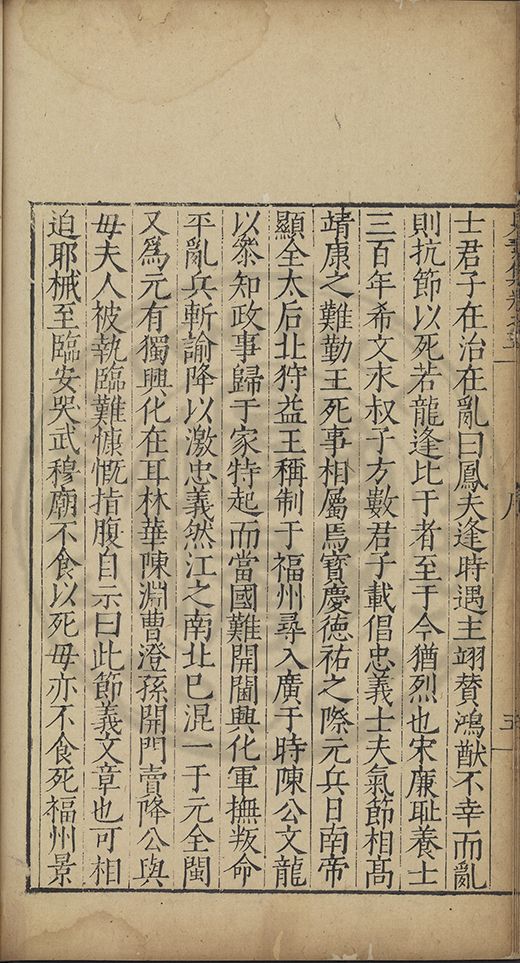 士君子在治在亂曰鳳夫逢時遇主翊賛鴻猷不幸而亂
則抗節以死若龍逢比干者至于今猶烈也宋廉耻養士
三百年希文末叔子方數君子載倡忠義士夫氣節相髙
靖康之難勤王死事相屬焉寳慶徳祐之際元兵日南帝
顯全太后北狩益王稱制于福州尋入廣于時陳公文龍
以叅知政事歸于家特起而當國難開閫興化軍撫叛命
平亂兵斬諭降以激忠義然江之南北已混一于元全閩
又爲元有獨興化在耳林華陳淵曹澄孫開門賣降公與
毋夫人被執臨難慷慨指腹自示曰此節義文章也可相
迫耶械至臨安哭武穆廟不食以死毋亦不食死福州景